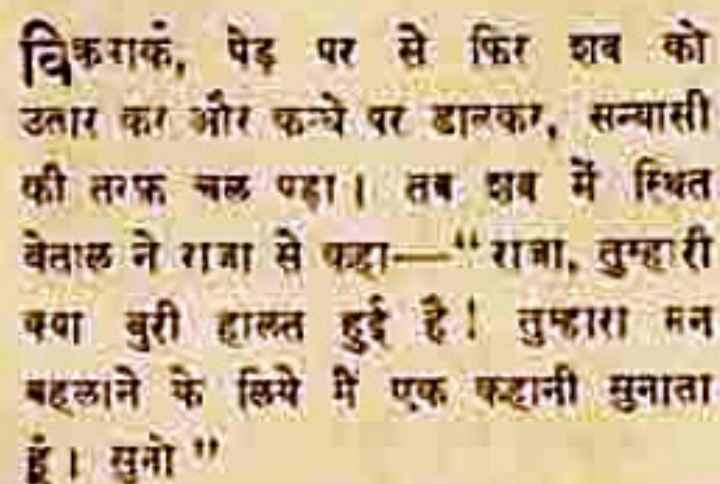 विक्रमार्क, पेड़ पर से फिर शव को
उतार कर और कन्धे पर डालकर, सन्यासी
की तरफ चल पड़ा। तब शव में स्थित
बेताल ने राजा से कहा—"राजा, तुम्हारी
क्या बुरी हालत हुई है! तुम्हारा मन
बहलाने के लिये मैं एक कहानी सुनाता
हूं। सुनो"